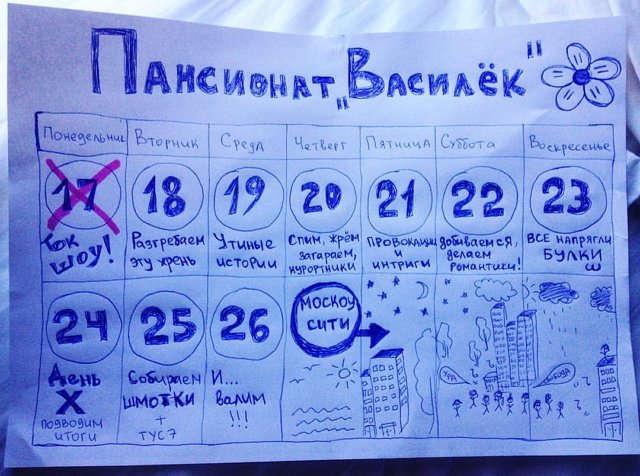 Пансионат „Василёк"
Понедельник Вторник Среда Четверг Пятница Суббота Воскресенье
17 18 19 20 21 22 23
Ток
шоу!
Разгребаем
эту хрень
Утиные
истории
Спим, жрём
загараем,
курортники
ПРОВОКАЦИИ
и
интриги
добиваемся,
делаем
Романтики!
ВСЕ НАПРЯГЛИ
БУЛКИ
24 25 26
День
X
подводим
итоги
Собираем
шмотки
+
ТУС?
И...
валим
!!!
МОСКОУ
СИТИ
УРА
СВОБОДА